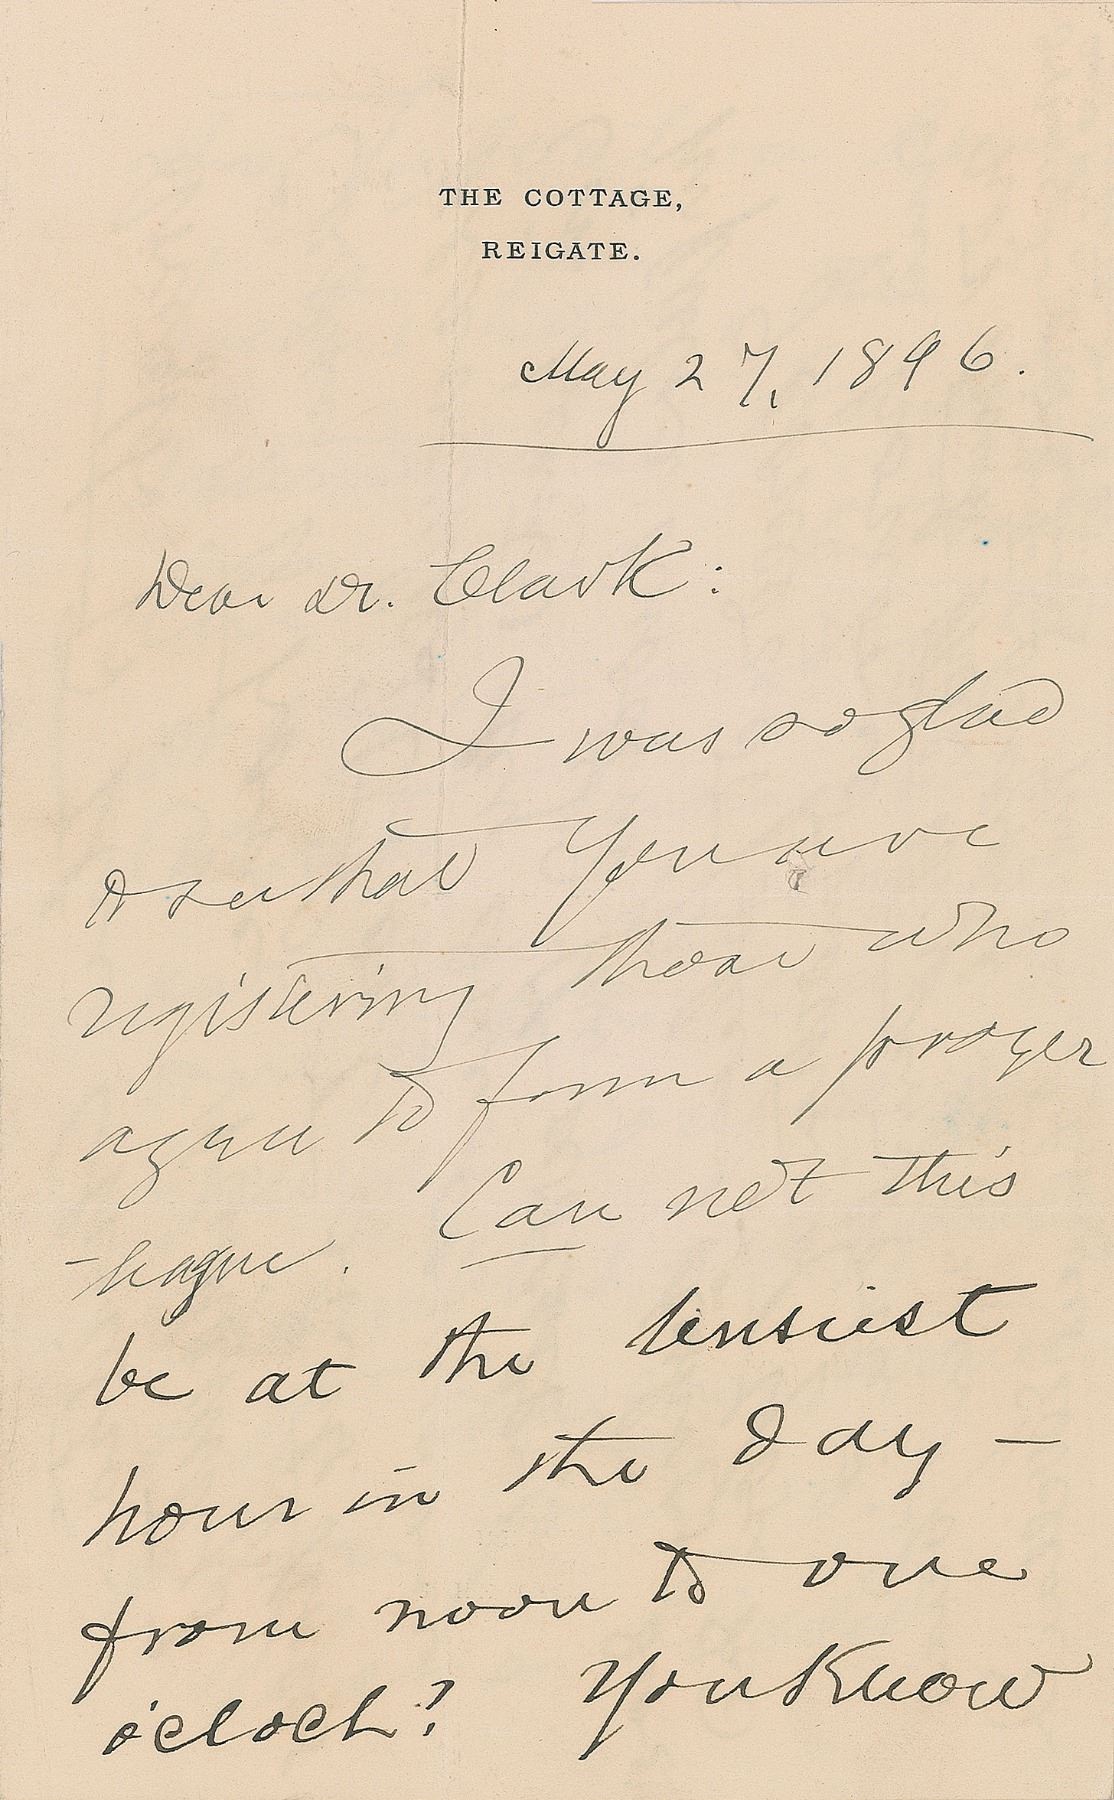 THE COTTAGE,
REIGATE.
May 27, 1896.
Dear Dr. Clark:
I was so glad
to see that you are
registering those who
agree to form a prayer
league. Can not this
be at the busiest
hour in the day —
from noon to one
o'clock? You know